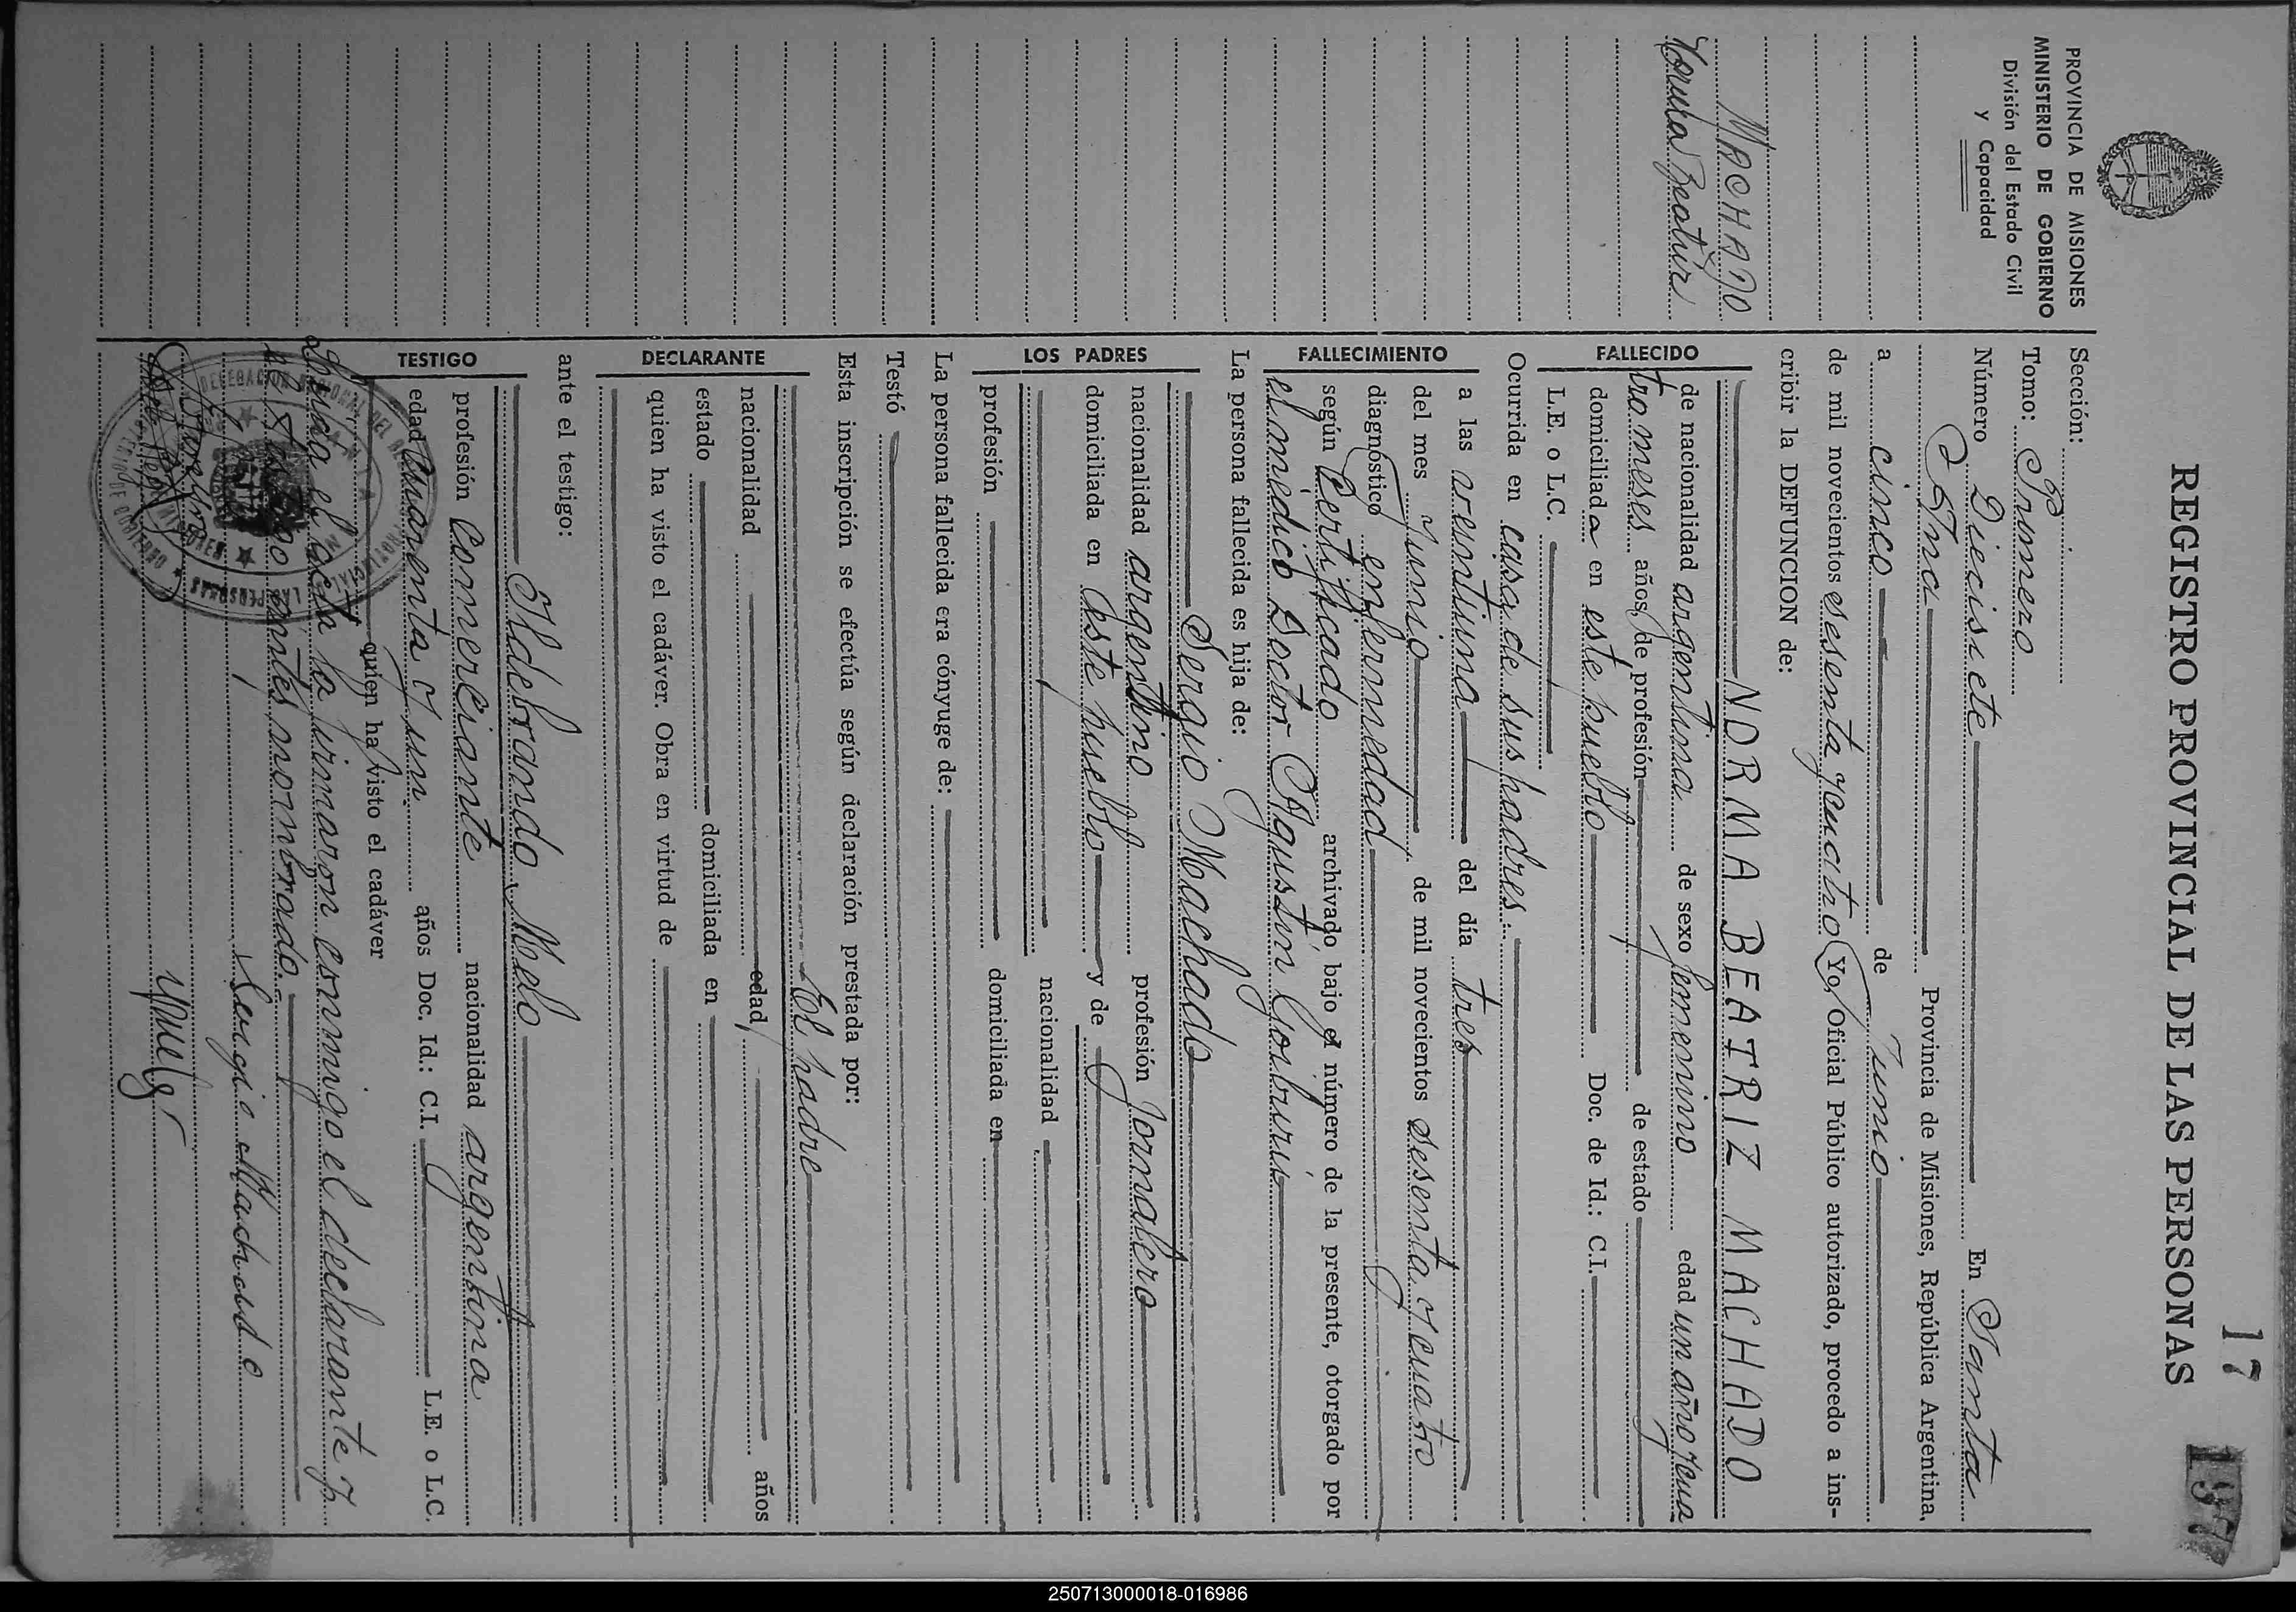 17
197
REGISTRO PROVINCIAL DE LAS PERSONAS
PROVINCIA DE MISIONES
MINISTERIO DE GOBIERNO
División del Estado Civil
y Capacidad
MACHADO
Norma Beatriz
Sección:
Tomo: Primero
Número Diecisiete En Santa
Ana Provincia de Misiones, República Argentina,
a cinco de Junio
de mil novecientos sesenta y cuatro Yo, Oficial Público autorizado, procedo a ins-
cribir la DEFUNCION de:
FALLECIDO
NORMA BEATRIZ MACHADO
de nacionalidad argentina de sexo femenino edad un año y cua
tro meses años, de profesión de estado
domiciliada en este pueblo Doc. de Id.: C.I.
L.E. o L.C.
Ocurrida en casa de sus padres.
FALLECIMIENTO
a las veintiuna del día tres
del mes Junio de mil novecientos sesenta y cuatro
diagnóstico enfermedad
según Certificado archivado bajo el número de la presente, otorgado por
el médico Doctor Agustín Goiburú
La persona fallecida es hija de:
LOS PADRES
Sergio Machado
nacionalidad argentino profesión Jornalero
domiciliada en este pueblo y de
nacionalidad
profesión domiciliada en
La persona fallecida era cónyuge de:
Testó
Esta inscripción se efectúa según declaración prestada por:
DECLARANTE
El padre
nacionalidad edad años
estado domiciliada en
quien ha visto el cadáver. Obra en virtud de
ante el testigo:
TESTIGO
Ildebrando Melo
profesión Comerciante nacionalidad argentina
edad cuarenta y un años Doc. Id.: C.I. L.E. o L.C.
quien ha visto el cadáver
Leida el acta la firmaron conmigo el declarante y
el testigo antes nombrado
Sergio Machado
250713000018-016986